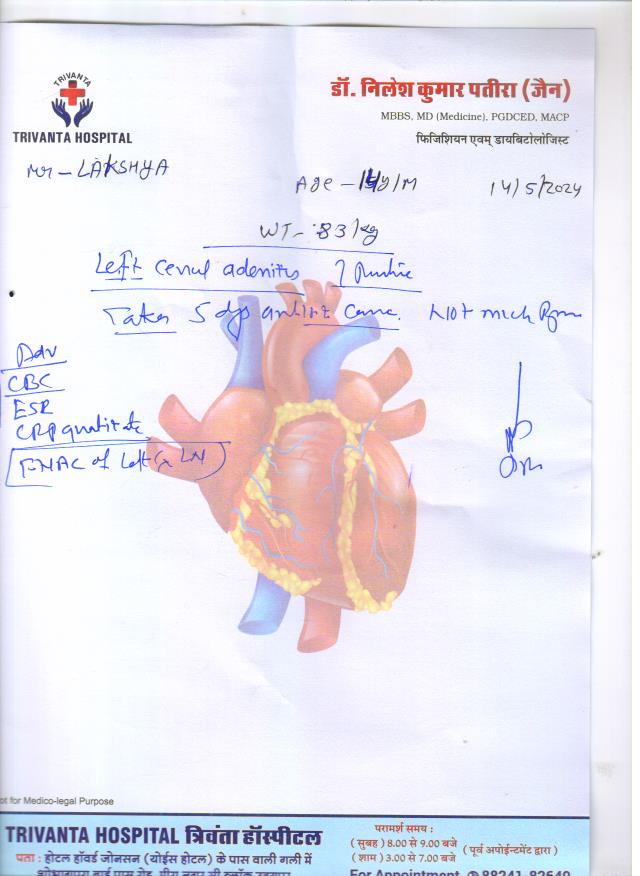 TRIVANTA
TRIVANTA HOSPITAL
डॉ. निलेश कुमार पतीरा (जैन)
MBBS, MD (Medicine), PGDCED, MACP
फिजिशियन एवम् डायबिटोलोजिस्ट
Mr - LAKSHYA
Age - y/M
14/5/2024
WT- 83 kg
Left adenitis ?
Takes 5 days Not much
Adv
CBC
ESR
CRP quantitate
FNAC of Left Cx LN
ot for Medico-legal Purpose
TRIVANTA HOSPITAL त्रिवंता हॉस्पीटल
पता : होटल हॉवर्ड जोनसन (योईस होटल) के पास वाली गली में
परामर्श समय :
( सुबह ) 8.00 से 9.00 बजे
( शाम ) 3.00 से 7.00 बजे
( पूर्व अपोईन्टमेंट द्वारा )
For Appointment